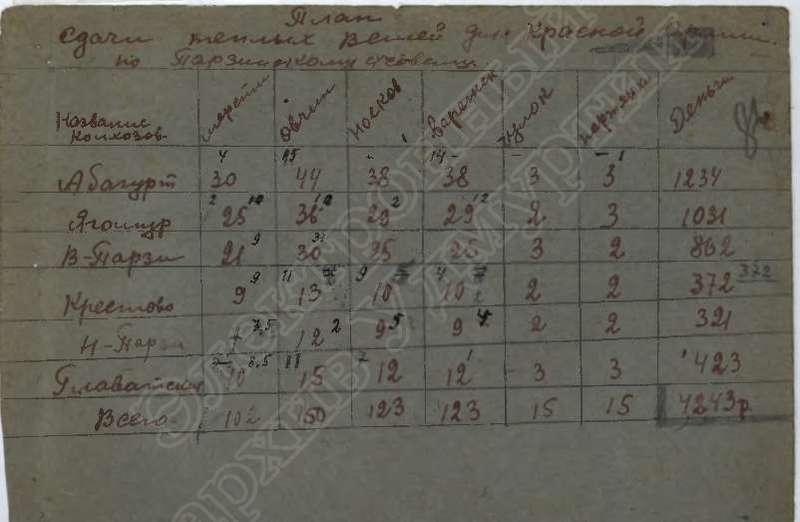 План
сдачи теплых вещей для Красной Армии.
по Парзинскому с/совету.
Название колхозов шерсти Овчин носков Варежек портянки Деньги
4 15 14 -
Абагурт 30 44 38 38 3 3 1234
2
Ягошур 25 36 29 29 2 3 1031
9
В-Парзи 21 30 25 25 3 2 862
9 11 9 4 372
Крестово 9 13 10 10 2 2 372
7,5 2 5 4
Н-Парзи 12 9 9 2 2 321
8,5 11
Главатских 10 15 12 12 3 3 423
Всего 102 150 123 123 15 15 4243р
Электронный
архив Удмуртии